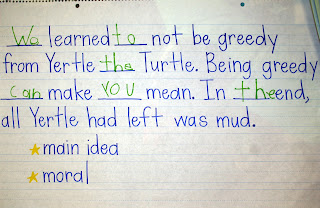 We learned to not be greedy
from Yertle the Turtle. Being greedy
can make you mean. In the end,
all Yertle had left was mud.
main idea
moral